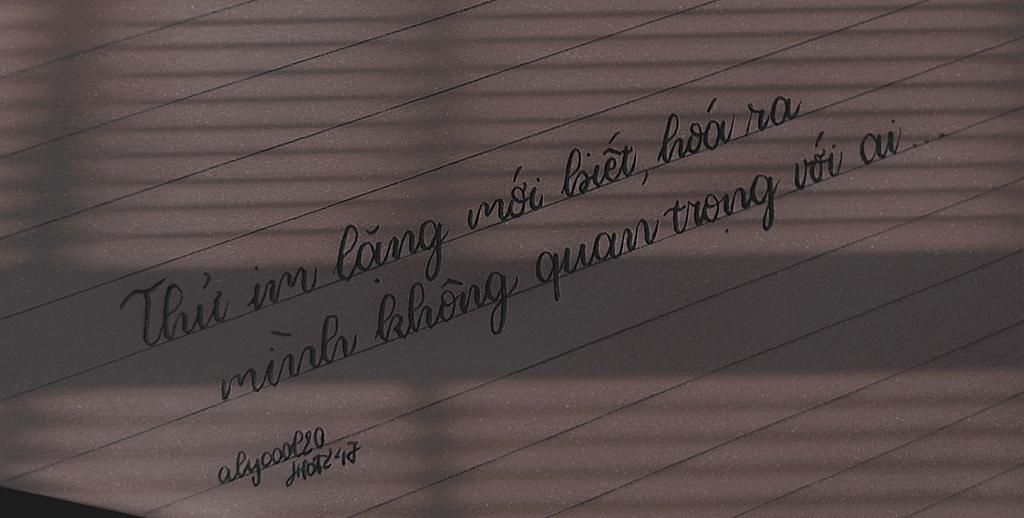 Thử im lặng mới biết, hoá ra
mình không quan trọng với ai...